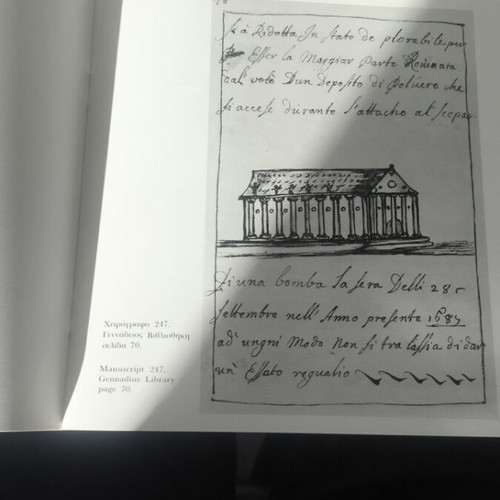 si à Ridotta In stato de plorabile, per
Esser la Maggior Parte Rouinata
Dun Deposito di Poluere che
si accese durante l'attacho al scopar
Di una bomba la sera Delli 28
settembre nell' Anno presente 1687
ad' ungni Modo Non si tralassia di dar
un' Essato regualio
Χειρόγραφο 247,
Γεννάδειος Βιβλιοθήκη
σελίδα 70.
Manuscript 247,
Gennadius Library
page 70.